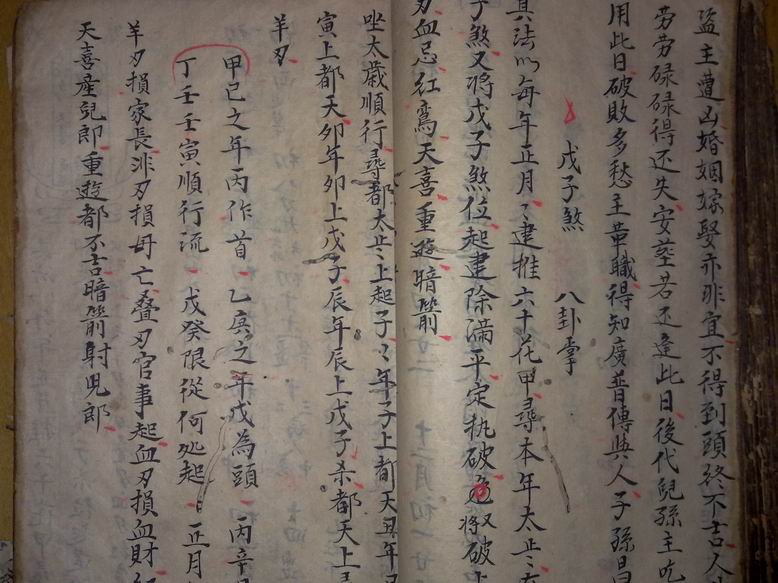 盜主遭凶婚姻嫁娶亦非宜不得到頭終不吉人
勞勞碌碌得还失安莖若还逢此日後代兒孫主吃
用此日破敗多愁主革職得知廣普傳與人子孫昌
戊子煞 八卦掌
其法以每年正月〻建推六十花甲尋本年太歲在
子煞又將戊子煞位起建除滿平定执破危又將破
刃血忌红鸾天喜重遊暗箭
坐太歲順行尋都太歲上起子〻年子上都天丑年
寅上都天卯年卯上戊子辰年辰上戊子杀都天上
羊刃
甲己之年丙作首 乙庚之年戊為頭 丙辛
丁壬壬寅順行流 戊癸限從何処起 正月
羊刃損家長 非刃損母亡叠刃官事起血刃損血財
天喜產兒郎重遊都不吉暗箭射児郎